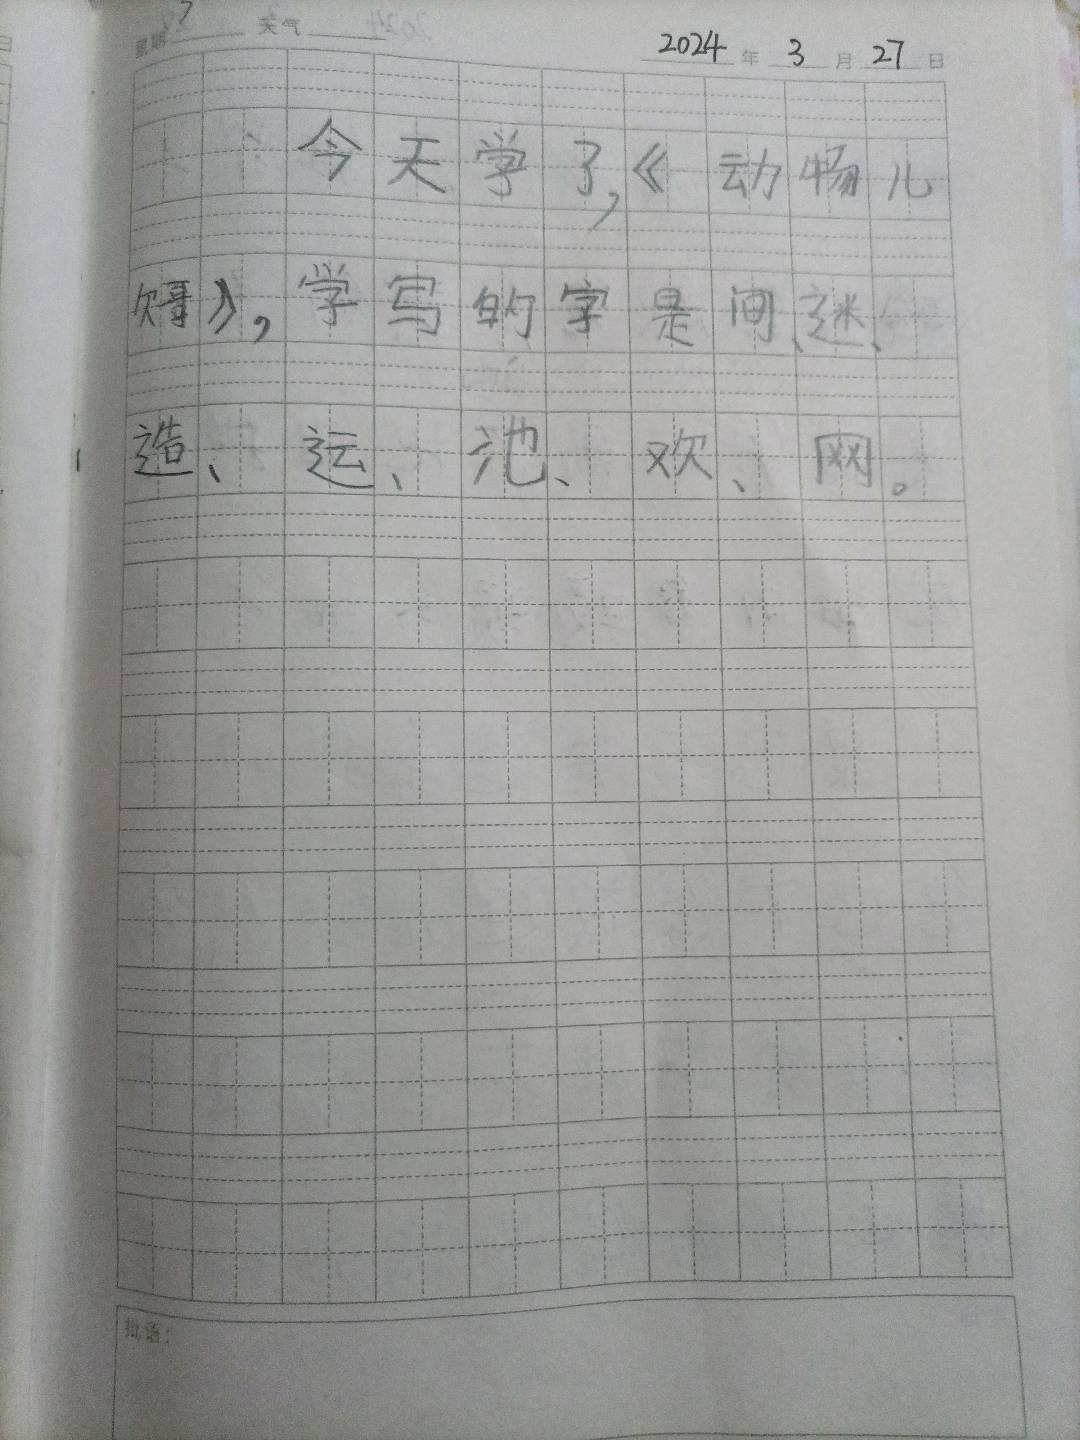 星期 天气
2024年3月27日
今天学了,《动物儿
歌》,学写的字是间、迷、
造、运、池、欢、网。
批语: